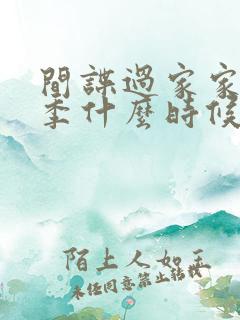 間諜過家家
季什麼時候
陌上人如玉
未任同意禁止转载